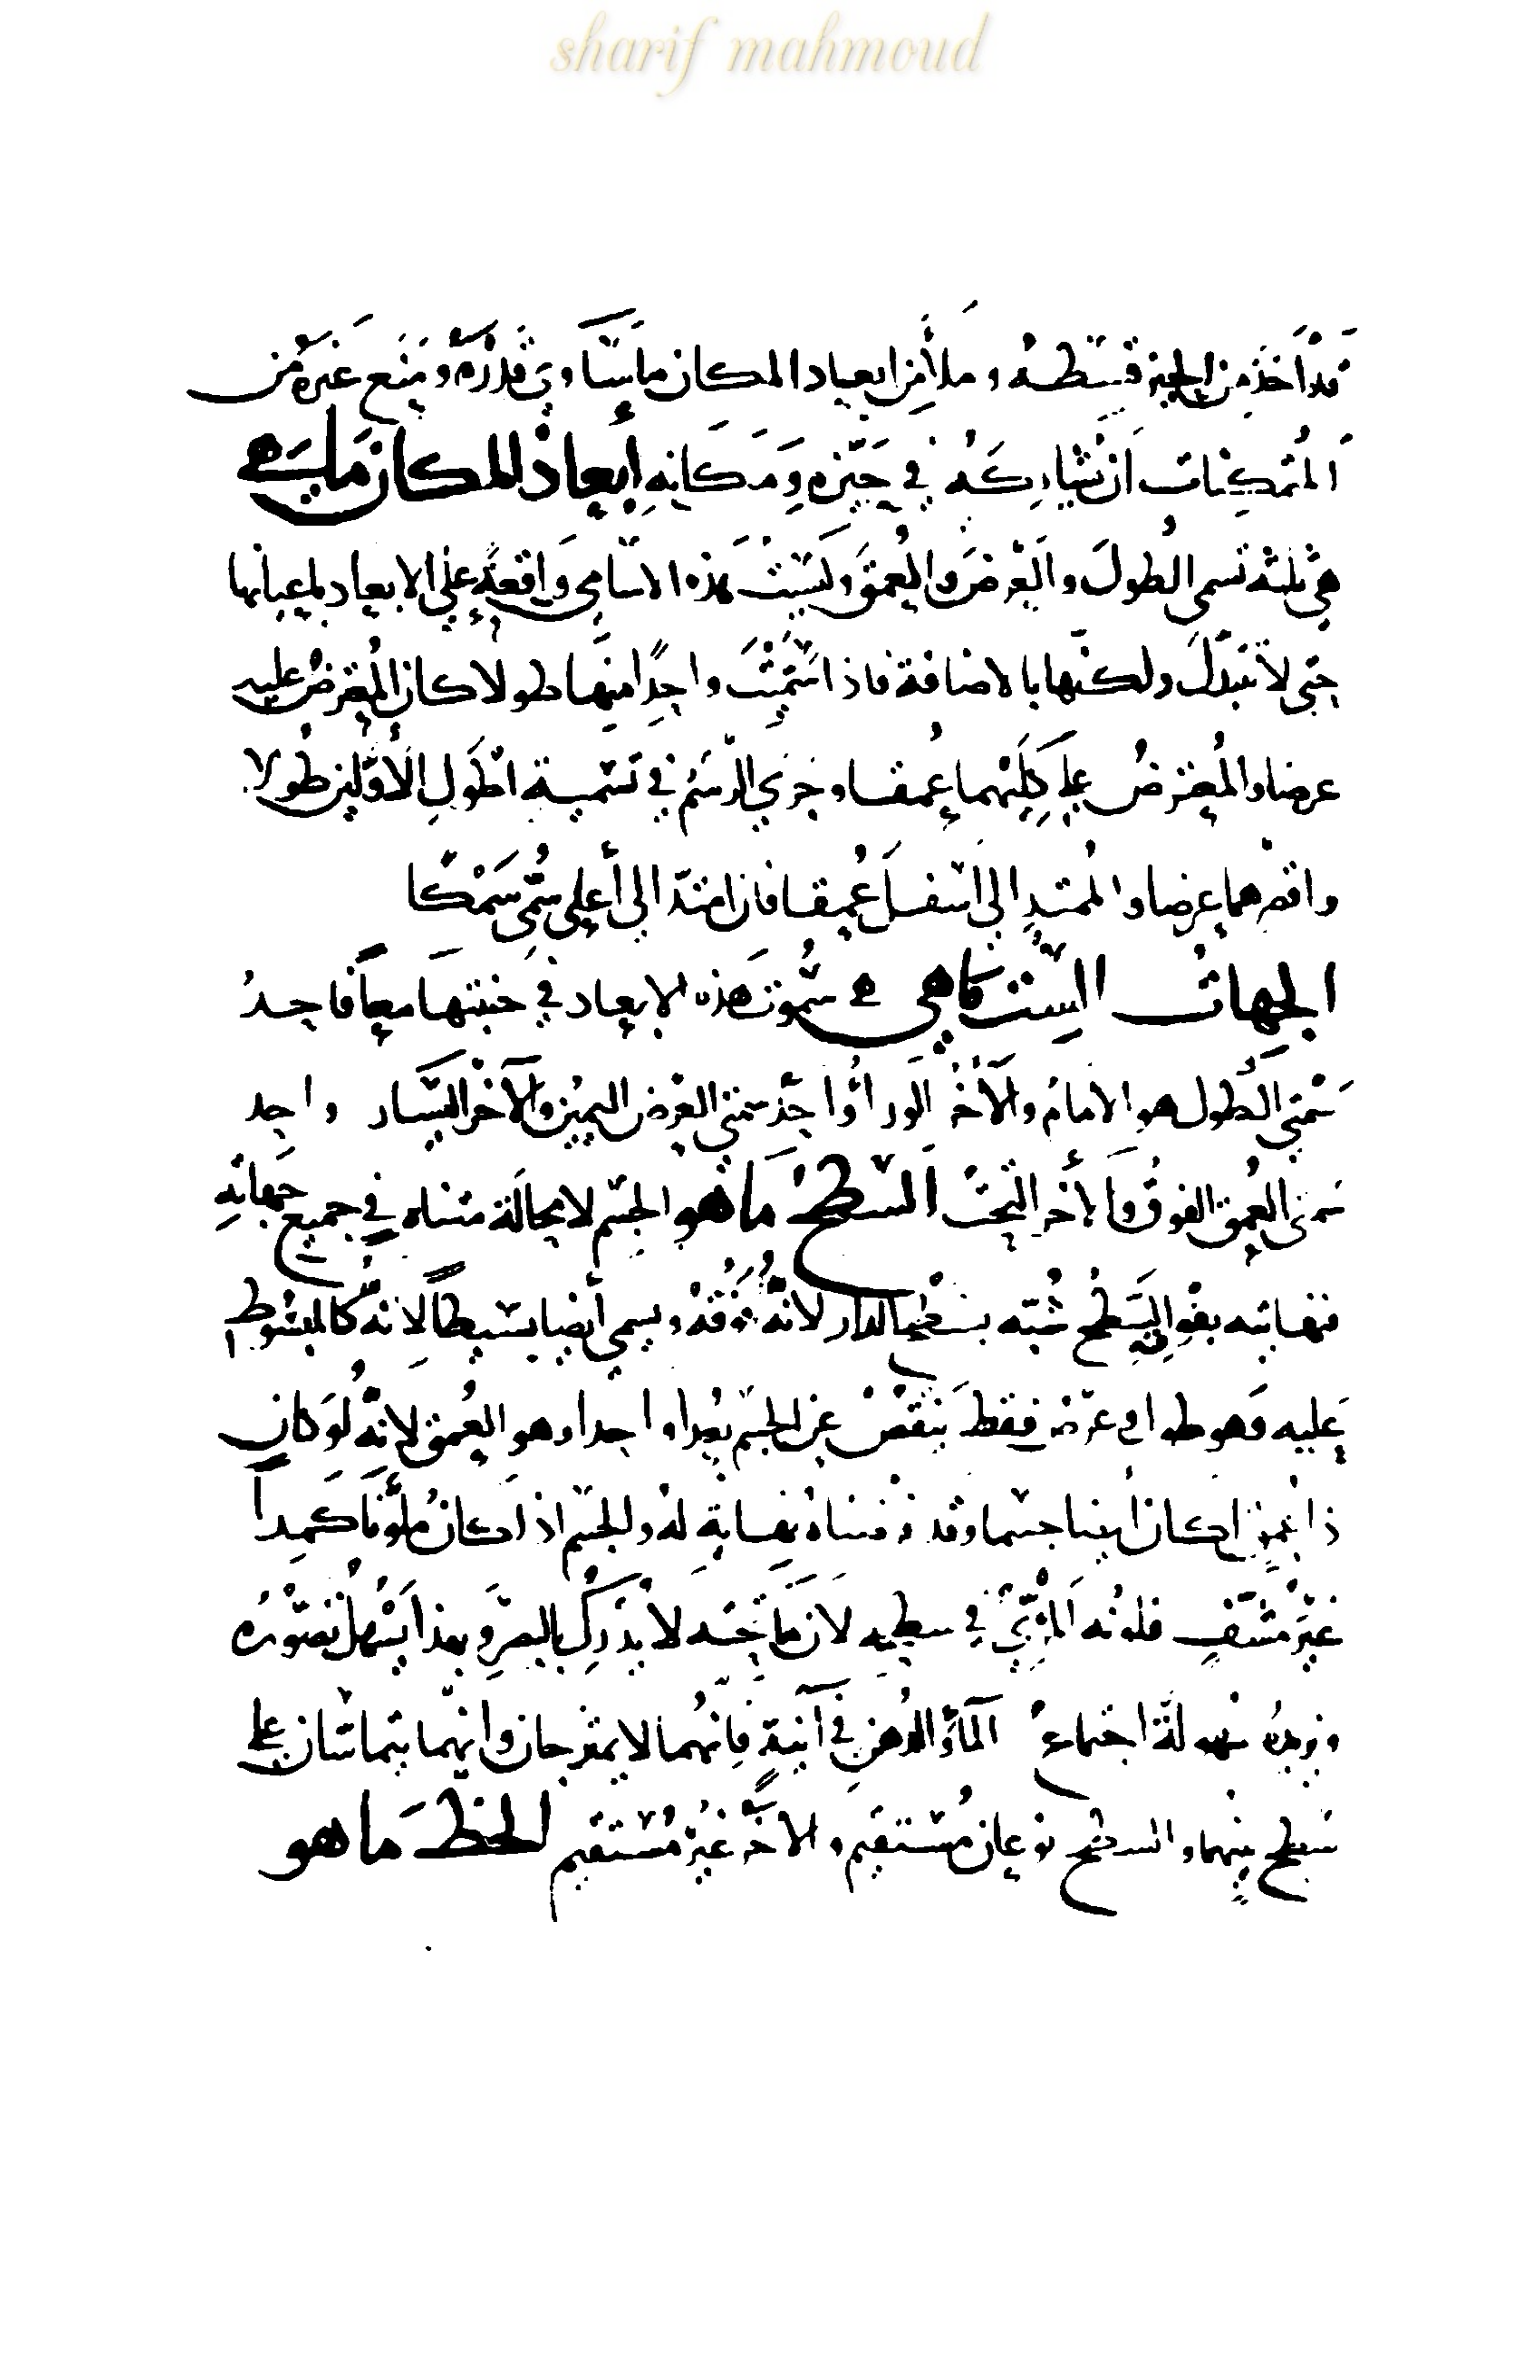 sharif mahmoud
قَدْ أَخَذَ مِنَ الحيز قِسْطَهُ وملأ مِنْ ابعاد المكان ما يُسَاوِي قَدْرَهُ ويَمْنَع غيرَهُ مِن
المُتمكِّنات اَنْ يُشاركَهُ في حَيّزه وَمَكَانِهِ أبعاد المكان ما هي
هي ثلثة تسمى الطُولَ والعَرْضَ والعُمقَ وليسَتْ هذه الاسامي وَاقعةً على الابعاد باعيانها
حتى لا تتبدّل ولكنّها بالاضافة فاذا سَمَّيْتَ واحِدًا منها طولا كان المُعترضُ عليه
عرضا والمُعترضُ على كِلَيْهما عُمقا وجَرَي الرّسْمُ في تسْمية اطْوَلِ الأوّلين طُولا
واقصرهما عرضا والمُمتد الى اسْفلَ عُمقا فان امتدّ الي أعلى سُمِّى سَمْكًا
الجهات السِّت ما هي هي سُمُوت هذه الابعاد في جنبتها معاً فاحدُ
سَمْتَي الطُول هو الامامُ والآخرُ الوراءُ واحَدُ سَمتي العَرْض اليمِيْنُ والآخرُ اليَسَار واحد
سَمتَى العُمق الفوقُ والآخر التَحْتُ السّطحُ مَا هُو الجسْم لا محالَةَ متناه في جميع جهاته
فنهايته هي السّطح شُبّه بسَطْح الدار لانّهُ فوْقَهُ ويسمى أيضا بسيطا لانّهُ كالمبسُوط
عليه وَهو طول وعرض فقط يَنقُصُ عن الجسْم بُعدا واحدا وهو العُمق لانّهُ لَوْ كان
ذا عُمقٍ لكان أيضا جسما وقد فرضناهُ نِهايةً لهُ والجسْم اذا كانَ مُلَوَّنا كَمِداً
غيرَ مُشِفٍّ فلونُه المرئيُّ في سطحِه لانّ مَا تَحتَه لا يُدْرَكُ بالبصَرِ وبهذا يَسْهُلُ تَصَوّرُهُ
ويزيدُه سُهولةً اجتماعُ الماء والدُهنِ في آنيةٍ فانّهُما لا يمتزجان وانّهما يتماسّان على
سَطح بينهما والسطح نوعان مُسْتقيم والآخرُ غيرُ مُسْتقيم الخطّ مَا هُو